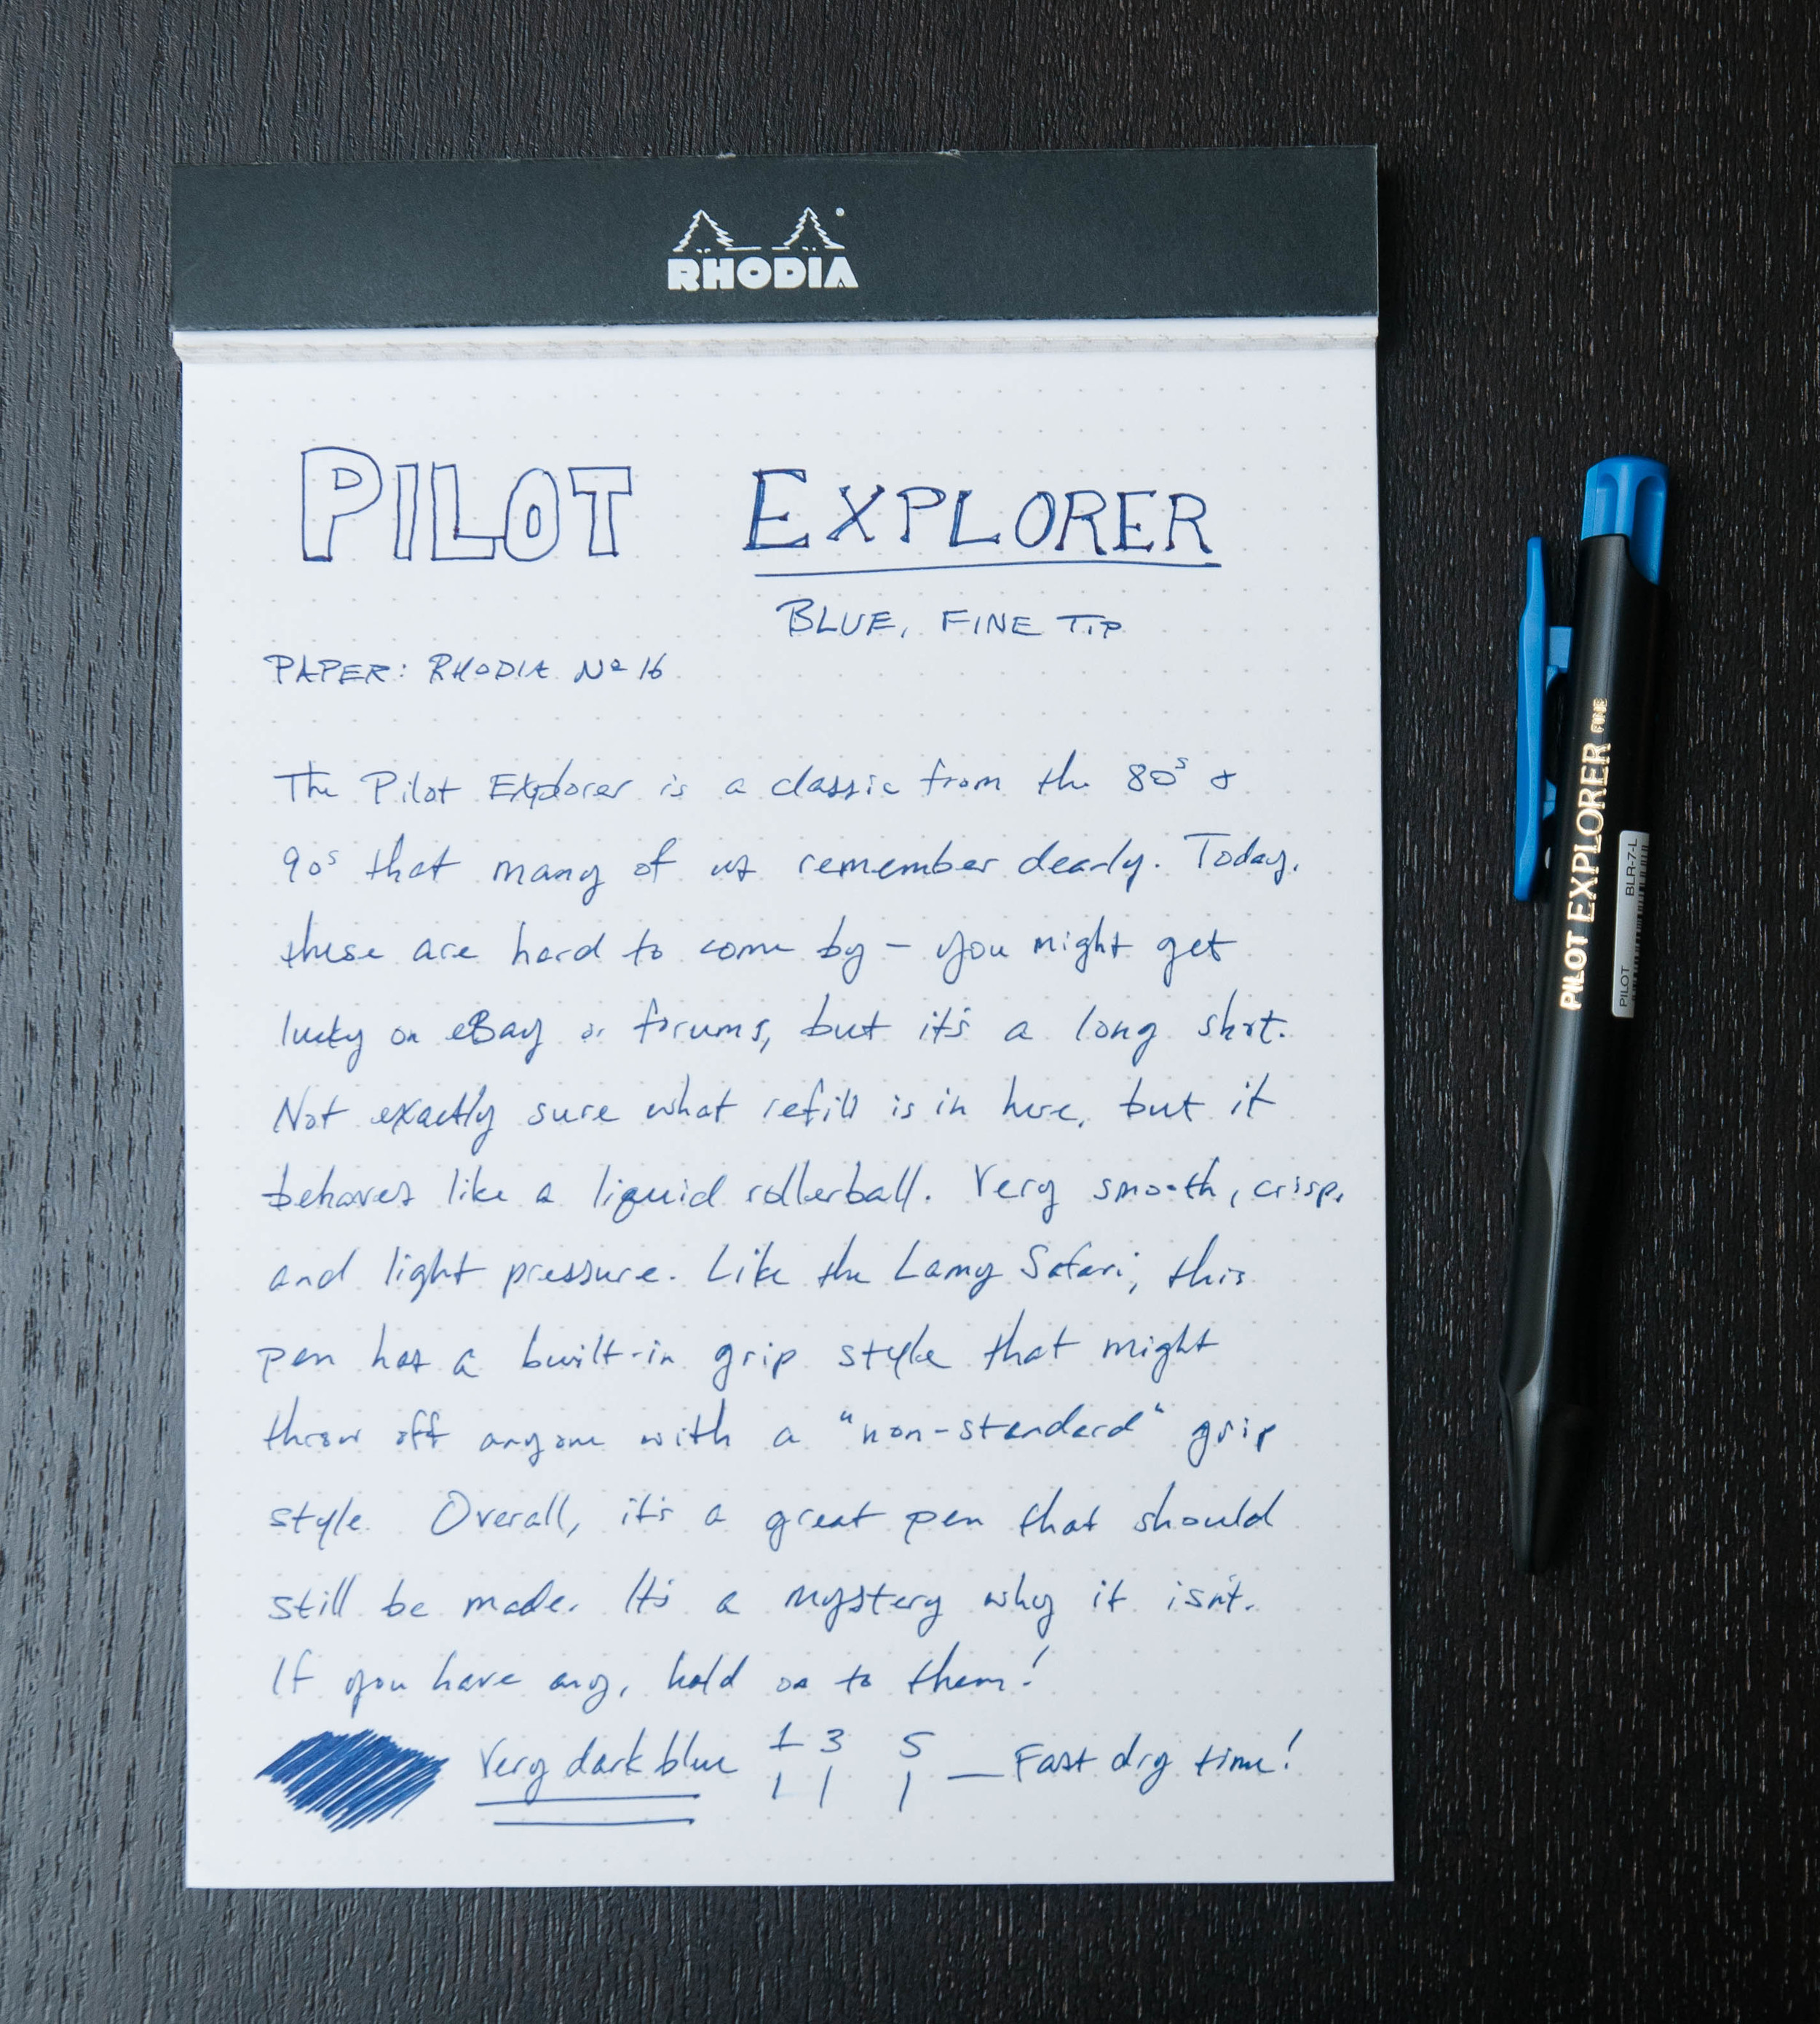 RHODIA
PILOT EXPLORER
BLUE, FINE TIP
PAPER: RHODIA Nº 16
The Pilot Explorer is a classic from the 80s &
90s that many of us remember dearly. Today,
these are hard to come by – you might get
lucky on eBay or forums, but it's a long shot.
Not exactly sure what refill is in here, but it
behaves like a liquid rollerball. Very smooth, crisp,
and light pressure. Like the Lamy Safari, this
pen has a built-in grip style that might
throw off anyone with a "non-standard" grip
style. Overall, it's a great pen that should
still be made. It's a mystery why it isn't.
If you have any, hold on to them!
Very dark blue 1 3 5 — Fast dry time!
PILOT EXPLORER FINE
PILOT BLR-7-L